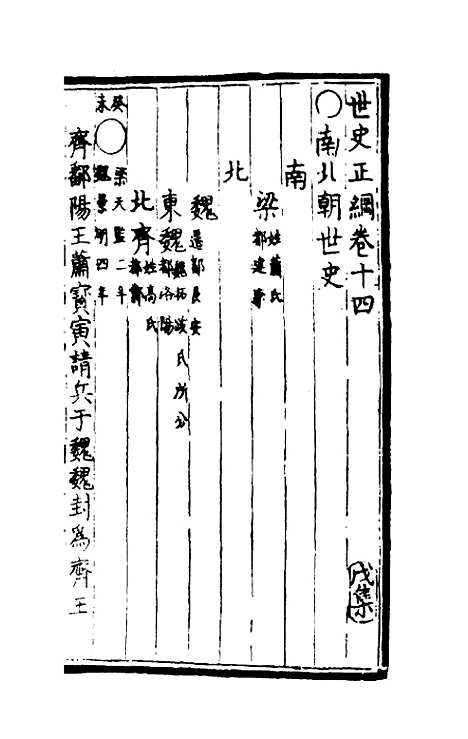 世史正綱卷十四 戊集
○南北朝世史
南
梁 姓蕭氏 都建康
北
魏 遷都長安
東魏 魏拓跋氏所分 都洛陽
北齊 姓高氏 都鄴
癸未 ○ 梁天監二年 魏景明四年
齊鄱陽王蕭寶寅請兵于魏魏封為齊王